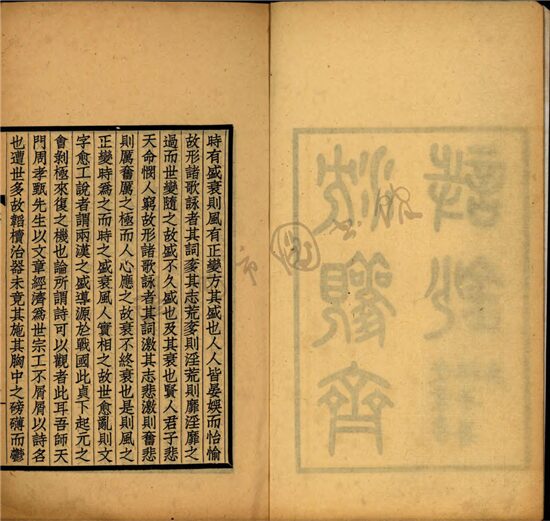 時有盛衰則風有正變方其盛也人人皆晏娛而怡愉
故形諸歌詠者其詞奓其志荒奓則淫荒則靡淫靡之
過而世變隨之故盛不久盛也及其衰也賢人君子悲
天命憫人窮故形諸歌詠者其詞激其志悲激則奮悲
則厲奮厲之極而人心應之故衰不終衰也是則風之
正變時爲之而時之盛衰風人實相之故世愈亂則文
字愈工說者謂兩漢之盛導源於戰國此貞下起元之
會剝極來復之機也論所謂詩可以觀者此耳吾師天
門周孝甄先生以文章經濟爲世宗工不屑屑以詩名
也遭世多故韜櫝治器未竟其施其胸中之磅礴而鬱